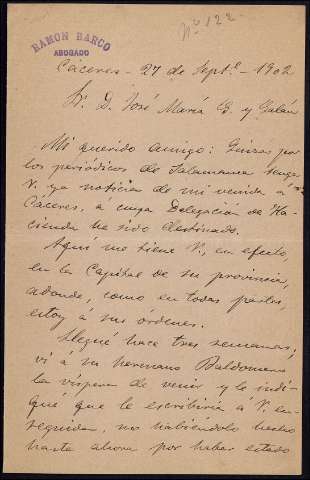 RAMON BARCO
ABOGADO
Nº 122
Cáceres - 27 de Septe. - 1902
Sr. D. José María G. y Galán
Mi querido amigo: Quizas por
los periódicos de Salamanca tenga
V. ya noticia de mi venida á
Cáceres, á cuya Delegación de Ha-
cienda he sido destinado.
Aquí me tiene V., en efecto,
en la Capital de su provincia,
adonde, como en todas partes,
estoy á sus órdenes.
Llegué hace tres semanas;
vi á su hermano Baldomero
la víspera de venir y le indi-
qué que le escribiría á V. en-
seguida, no habiéndolo hecho
hasta ahora por haber estado